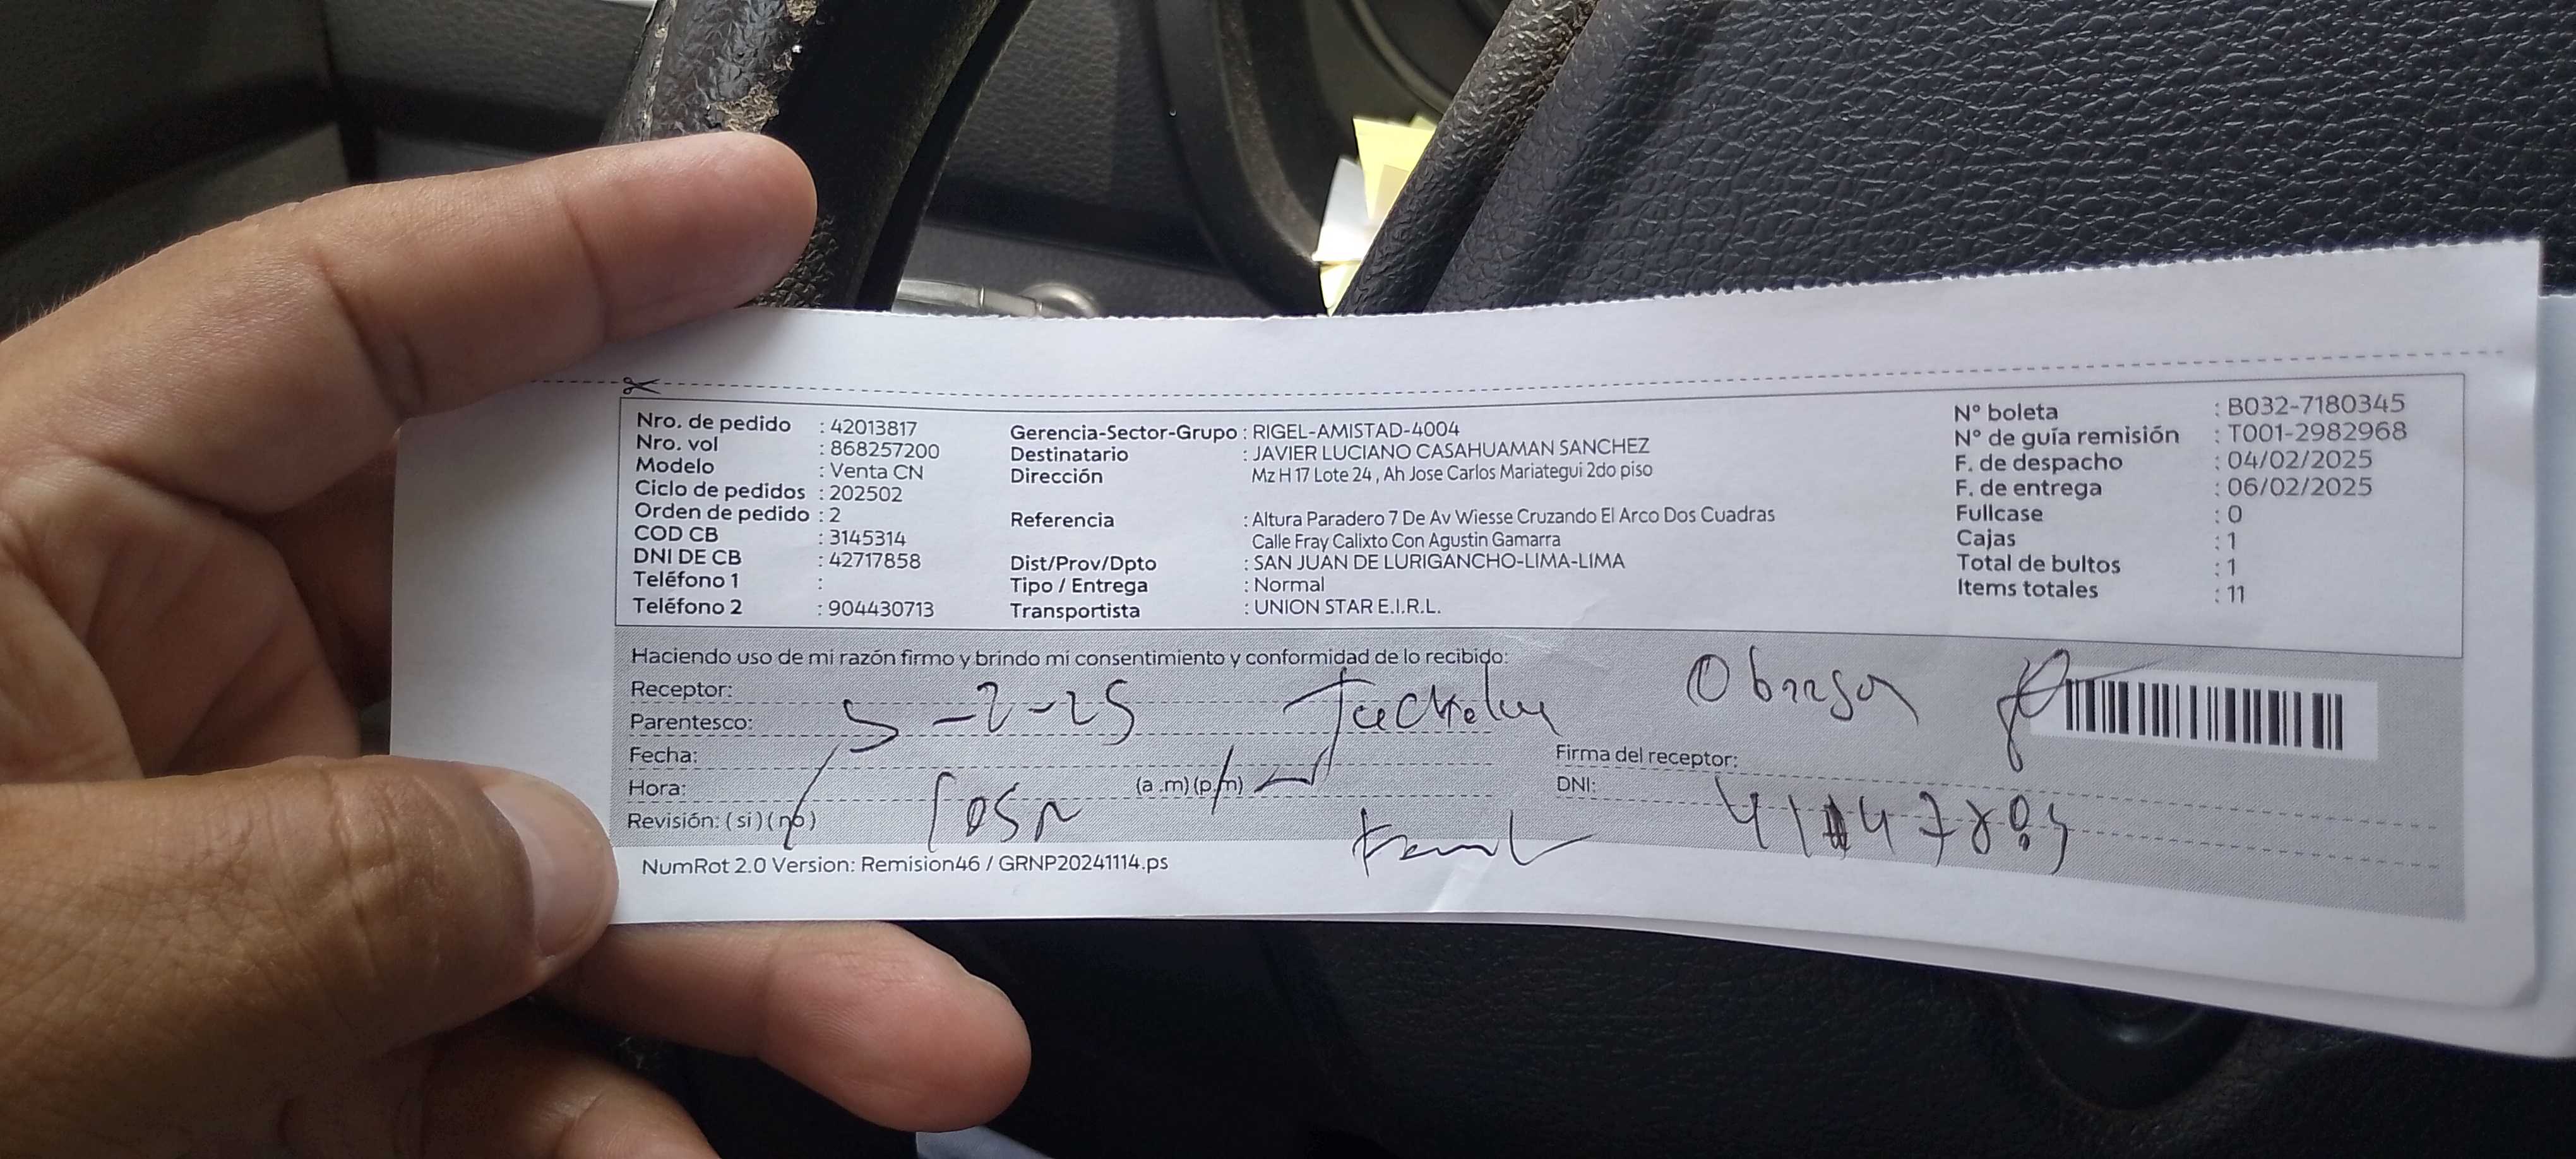 Nro. de pedido : 42013817
Nro. vol : 868257200
Modelo : Venta CN
Ciclo de pedidos : 202502
Orden de pedido : 2
COD CB : 3145314
DNI DE CB : 42717858
Teléfono 1 :
Teléfono 2 : 904430713
Gerencia-Sector-Grupo : RIGEL-AMISTAD-4004
Destinatario : JAVIER LUCIANO CASAHUAMAN SANCHEZ
Dirección Mz H 17 Lote 24 , Ah Jose Carlos Mariategui 2do piso
Referencia : Altura Paradero 7 De Av Wiesse Cruzando El Arco Dos Cuadras
Calle Fray Calixto Con Agustin Gamarra
Dist/Prov/Dpto : SAN JUAN DE LURIGANCHO-LIMA-LIMA
Tipo / Entrega : Normal
Transportista : UNION STAR E.I.R.L.
N° boleta : B032-7180345
N° de guía remisión : T001-2982968
F. de despacho : 04/02/2025
F. de entrega : 06/02/2025
Fullcase : 0
Cajas : 1
Total de bultos : 1
Items totales : 11
Haciendo uso de mi razón firmo y brindo mi consentimiento y conformidad de lo recibido:
Receptor:
Parentesco: 5-2-25
Fecha:
Hora: (a .m) (p.m)
Revisión: ( si ) ( no )
Firma del receptor:
DNI:
NumRot 2.0 Version: Remision46 / GRNP20241114.ps